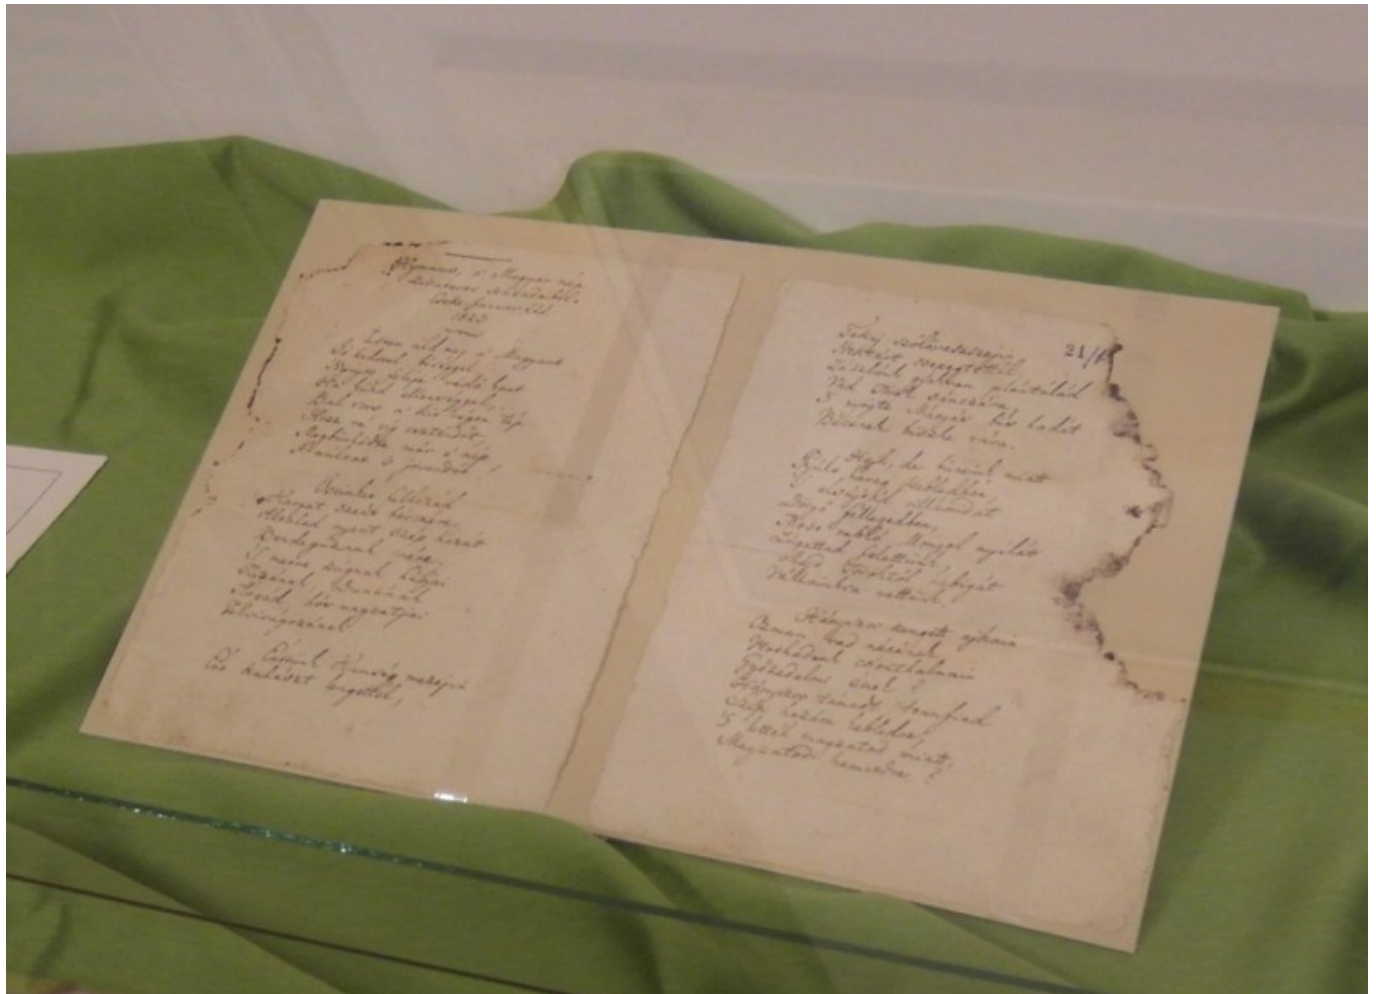 Hymnus, a' Magyar nép
zivataros századaiból.
Cseke, Január. 22d.
1823
Isten áldd meg a' Magyart
Jó kedvvel, bőséggel,
Nyújts feléje védő kart
Ha küzd ellenséggel;
Bal sors a' kit régen tép
Hozz rá víg esztendőt,
Megbünhödte már e' nép
A' multat 's jövendőt.
Őseinket felhozád
Kárpát szent bérczére,
Általad nyert szép hazát
Bendegúznak vére.
'S merre zúgnak habjai
Tiszának, Dunának
Árpád hős magzatjai
Felvirágozának.
Értünk Kúnság mezejin
Ért kalászt lengettél,
Tokaj szőlővesszejin
Nektárt csepegtettél.
21/1
Zászlónk gyakran plántálád
Vad Török sánczára,
'S nyögte Mátyás bús hadát
Bécsnek büszke vára.
Hajh, de bűneink miatt
Gyúlt harag kebledben,
'S elsújtád villámidat
Dörgő fellegedben,
Most rabló Mongol nyilát
Zúgattad felettünk,
Majd Töröktől rabigát
Vállainkra vettünk.
Hányszor zengett ajkain
Ozman vad népének
Vert hadunk csonthalmain
Győzedelmi ének!
Hányszor támadt tennfiad
Szép hazám kebledre,
'S lettél magzatod miatt,
Magzatod hamvedre?